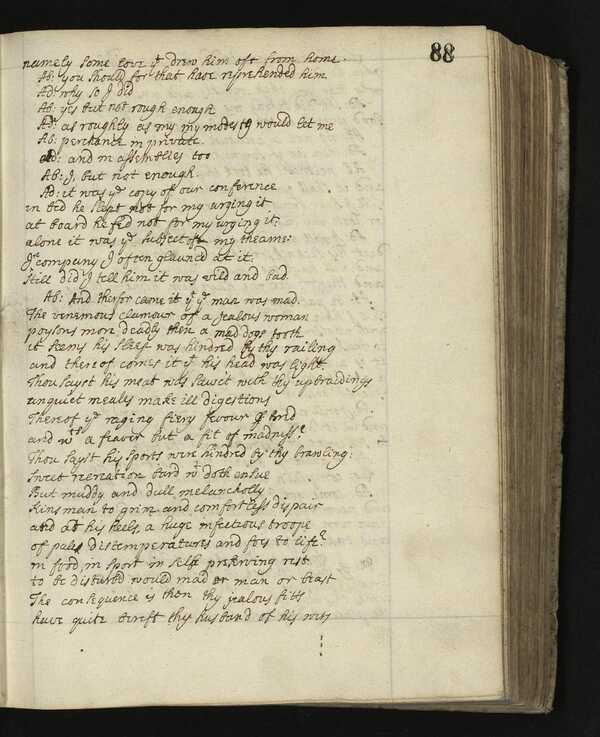 88
namely some love yt drew him oft from home.
Ab: you should for that have reprehended him
Ad: why so I did
Ab: yes but not rough enough
Ad: as roughly as my my modesty would let me
Ab: perchance in private.
Ad: and in assemblies too
Ab: I, but not enough.
Ad: it was ye copy of our conference
in bed he slept not for my urging it
at board he fed not for my urging it:
alone it was ye subject of my theame:
In company I often glaunced at it.
Still did I tell him it was vild and bad.
Ab: And therfor came it yt ye man was mad.
The venemous clamour of a jealous woman
poysons more deadly then a mad dogs tooth
it seems his sleep was hindred by thy railing
and thereof comes it yt his head was light.
Thou sayst his meat was sawct with thy upbraidings
unquiet meales make ill digestions
Thereof ye raging fiery feavour bred
and wts a feavir but a fit of madness?
Thou sayst his sports were hindred by thy brawling:
Sweet recreation bard wt doth ensue
But muddy and dull melancholly
Kinsman to grim and comfortless dispair
and at his heels, a huge infectious troope
of pale distemperatures and foes to life?
in food, in sport in self preserving rest
to be disturbd would mad or man or beast
The consequence is then thy jealous fitts
have quite bereft thy husband of his witts